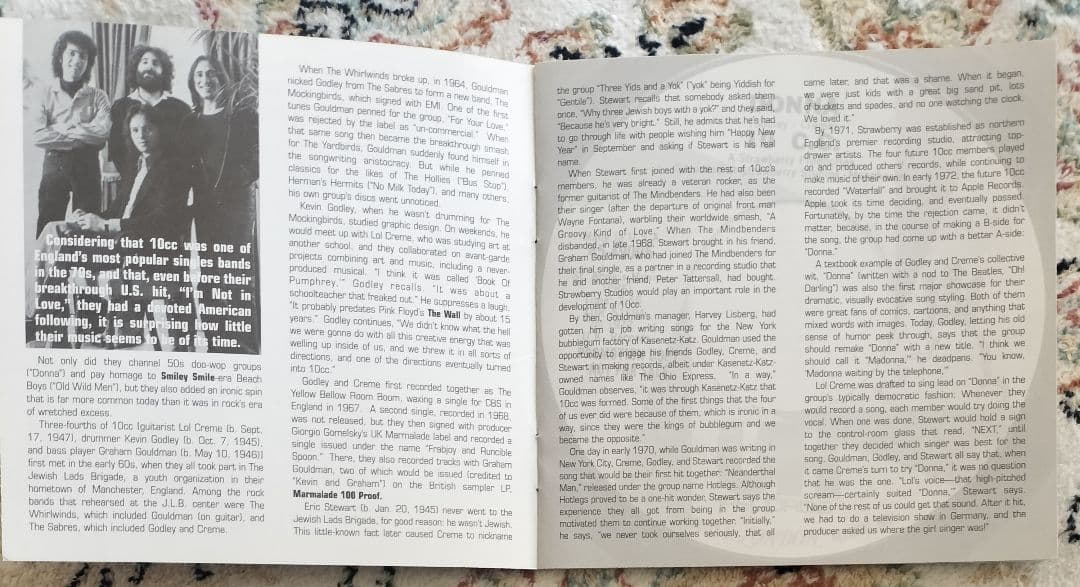 Considering that 10cc was one of
England's most popular singles bands
in the 70s, and that, even before their
breakthrough U.S. hit, "I'm Not in
Love," they had a devoted American
following, it is surprising how little
their music seems to be of its time.
Not only did they channel 50s doo-wop groups
("Donna") and pay homage to Smiley Smile-era Beach
Boys ("Old Wild Men"), but they also added an ironic spin
that is far more common today than it was in rock's era
of wretched excess.
Three-fourths of 10cc (guitarist Lol Creme (b. Sept.
17, 1947), drummer Kevin Godley (b. Oct. 7, 1945),
and bass player Graham Gouldman (b. May 10, 1946))
first met in the early 60s, when they all took part in The
Jewish Lads Brigade, a youth organization in their
hometown of Manchester, England. Among the rock
bands that rehearsed at the J.L.B. center were The
Whirlwinds, which included Gouldman (on guitar), and
The Sabres, which included Godley and Creme.
When The Whirlwinds broke up, in 1964, Gouldman
nicked Godley from The Sabres to form a new band, The
Mockingbirds, which signed with EMI. One of the first
tunes Gouldman penned for the group, "For Your Love,"
was rejected by the label as "un-commercial." When
that same song then became the breakthrough smash
for The Yardbirds, Gouldman suddenly found himself in
the songwriting aristocracy. But while he penned
classics for the likes of The Hollies ("Bus Stop"),
Herman's Hermits ("No Milk Today"), and many others,
his own group's discs went unnoticed.
Kevin Godley, when he wasn't drumming for The
Mockingbirds, studied graphic design. On weekends, he
would meet up with Lol Creme, who was studying art at
another school, and they collaborated on avant-garde
projects combining art and music, including a never-
produced musical. "I think it was called 'Book Of
Pumphrey,'" Godley recalls. "It was about a
schoolteacher that freaked out." He suppresses a laugh,
"It probably predates Pink Floyd's The Wall by about 15
years." Godley continues, "We didn't know what the hell
we were gonna do with all this creative energy that was
welling up inside of us, and we threw it in all sorts of
directions, and one of the directions eventually turned
into 10cc."
Godley and Creme first recorded together as The
Yellow Bellow Room Boom, waxing a single for CBS in
England in 1967. A second single, recorded in 1968,
was not released, but they then signed with producer
Giorgio Gomelsky's UK Marmalade label and recorded a
single issued under the name "Frabjoy and Runcible
Spoon." There, they also recorded tracks with Graham
Gouldman, two of which would be issued (credited to
"Kevin and Graham") on the British sampler LP,
Marmalade 100 Proof.
Eric Stewart (b. Jan. 20, 1945) never went to the
Jewish Lads Brigade, for good reason: he wasn't Jewish.
This little-known fact later caused Creme to nickname
the group "Three Yids and a Yok" ("yok" being Yiddish for
"Gentile"). Stewart recalls that somebody asked them
once, "Why three Jewish boys with a yok?" and they said,
"Because he's very bright." Still, he admits that he's had
to go through life with people wishing him "Happy New
Year" in September and asking if Stewart is his real
name.
When Stewart first joined with the rest of 10cc's
members, he was already a veteran rocker, as the
former guitarist of The Mindbenders. He had also been
their singer (after the departure of original front man
Wayne Fontana), warbling their worldwide smash, "A
Groovy Kind of Love." When The Mindbenders
disbanded, in late 1968, Stewart brought in his friend,
Graham Gouldman, who had joined The Mindbenders for
their final single, as a partner in a recording studio that
he and another friend, Peter Tattersall, had bought.
Strawberry Studios would play an important role in the
development of 10cc.
By then, Gouldman's manager, Harvey Lisberg, had
gotten him a job writing songs for the New York
bubblegum factory of Kasenetz-Katz. Gouldman used the
opportunity to engage his friends Godley, Creme, and
Stewart in making records, albeit under Kasenetz-Katz-
owned names like The Ohio Express. "In a way,"
Gouldman observes, "it was through Kasenetz-Katz that
10cc was formed. Some of the first things that the four
of us ever did were because of them, which is ironic in a
way, since they were the kings of bubblegum and we
became the opposite."
One day in early 1970, while Gouldman was writing in
New York City, Creme, Godley, and Stewart recorded the
song that would be their first hit together: "Neanderthal
Man," released under the group name Hotlegs. Although
Hotlegs proved to be a one-hit wonder, Stewart says the
experience they all got from being in the group
motivated them to continue working together. "Initially,"
he says, "we never took ourselves seriously, that all
came later, and that was a shame. When it began,
we were just kids with a great big sand pit, lots
of buckets and spades, and no one watching the clock.
We loved it."
By 1971, Strawberry was established as northern
England's premier recording studio, attracting top-
drawer artists. The four future 10cc members played
on and produced others' records, while continuing to
make music of their own. In early 1972, the future 10cc
recorded "Waterfall" and brought it to Apple Records.
Apple took its time deciding, and eventually passed.
Fortunately, by the time the rejection came, it didn't
matter, because, in the course of making a B-side for
the song, the group had come up with a better A-side:
"Donna."
A textbook example of Godley and Creme's collective
wit, "Donna" (written with a nod to The Beatles, "Oh!
Darling") was also the first major showcase for their
dramatic, visually evocative song styling. Both of them
were great fans of comics, cartoons, and anything that
mixed words with images. Today, Godley, letting his old
sense of humor peek through, says that the group
should remake "Donna" with a new title. "I think we
should call it "Madonna,"" he deadpans. "You know,
'Madonna waiting by the telephone.'"
Lol Creme was drafted to sing lead on "Donna" in the
group's typically democratic fashion: Whenever they
would record a song, each member would try doing the
vocal. When one was done, Stewart would hold a sign
to the control-room glass that read, "NEXT," until
together they decided which singer was best for the
song. Gouldman, Godley, and Stewart all say that, when
it came Creme's turn to try "Donna," it was no question
that he was the one. "Lol's voice—that high-pitched
scream—certainly suited "Donna,"" Stewart says.
"None of the rest of us could get that sound. After it hit,
we had to do a television show in Germany, and the
producer asked us where the girl singer was!"